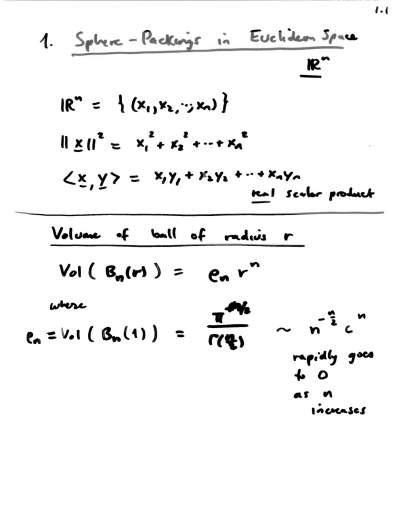 1.1
1. Sphere-Packings in Euclidean Space
ℝⁿ
ℝⁿ = { (x₁, x₂, ..., xₙ) }
||x||² = x₁² + x₂² + ... + xₙ²
<x, y> = x₁y₁ + x₂y₂ + ... + xₙyₙ
real scalar product
Volume of ball of radius r
Vol ( Bₙ(r) ) = eₙ rⁿ
where
eₙ = Vol ( Bₙ(1) ) = π^{n/2} / Γ(n/2) ~ n^{-n/2} cⁿ
rapidly goes
to 0
as n
increases